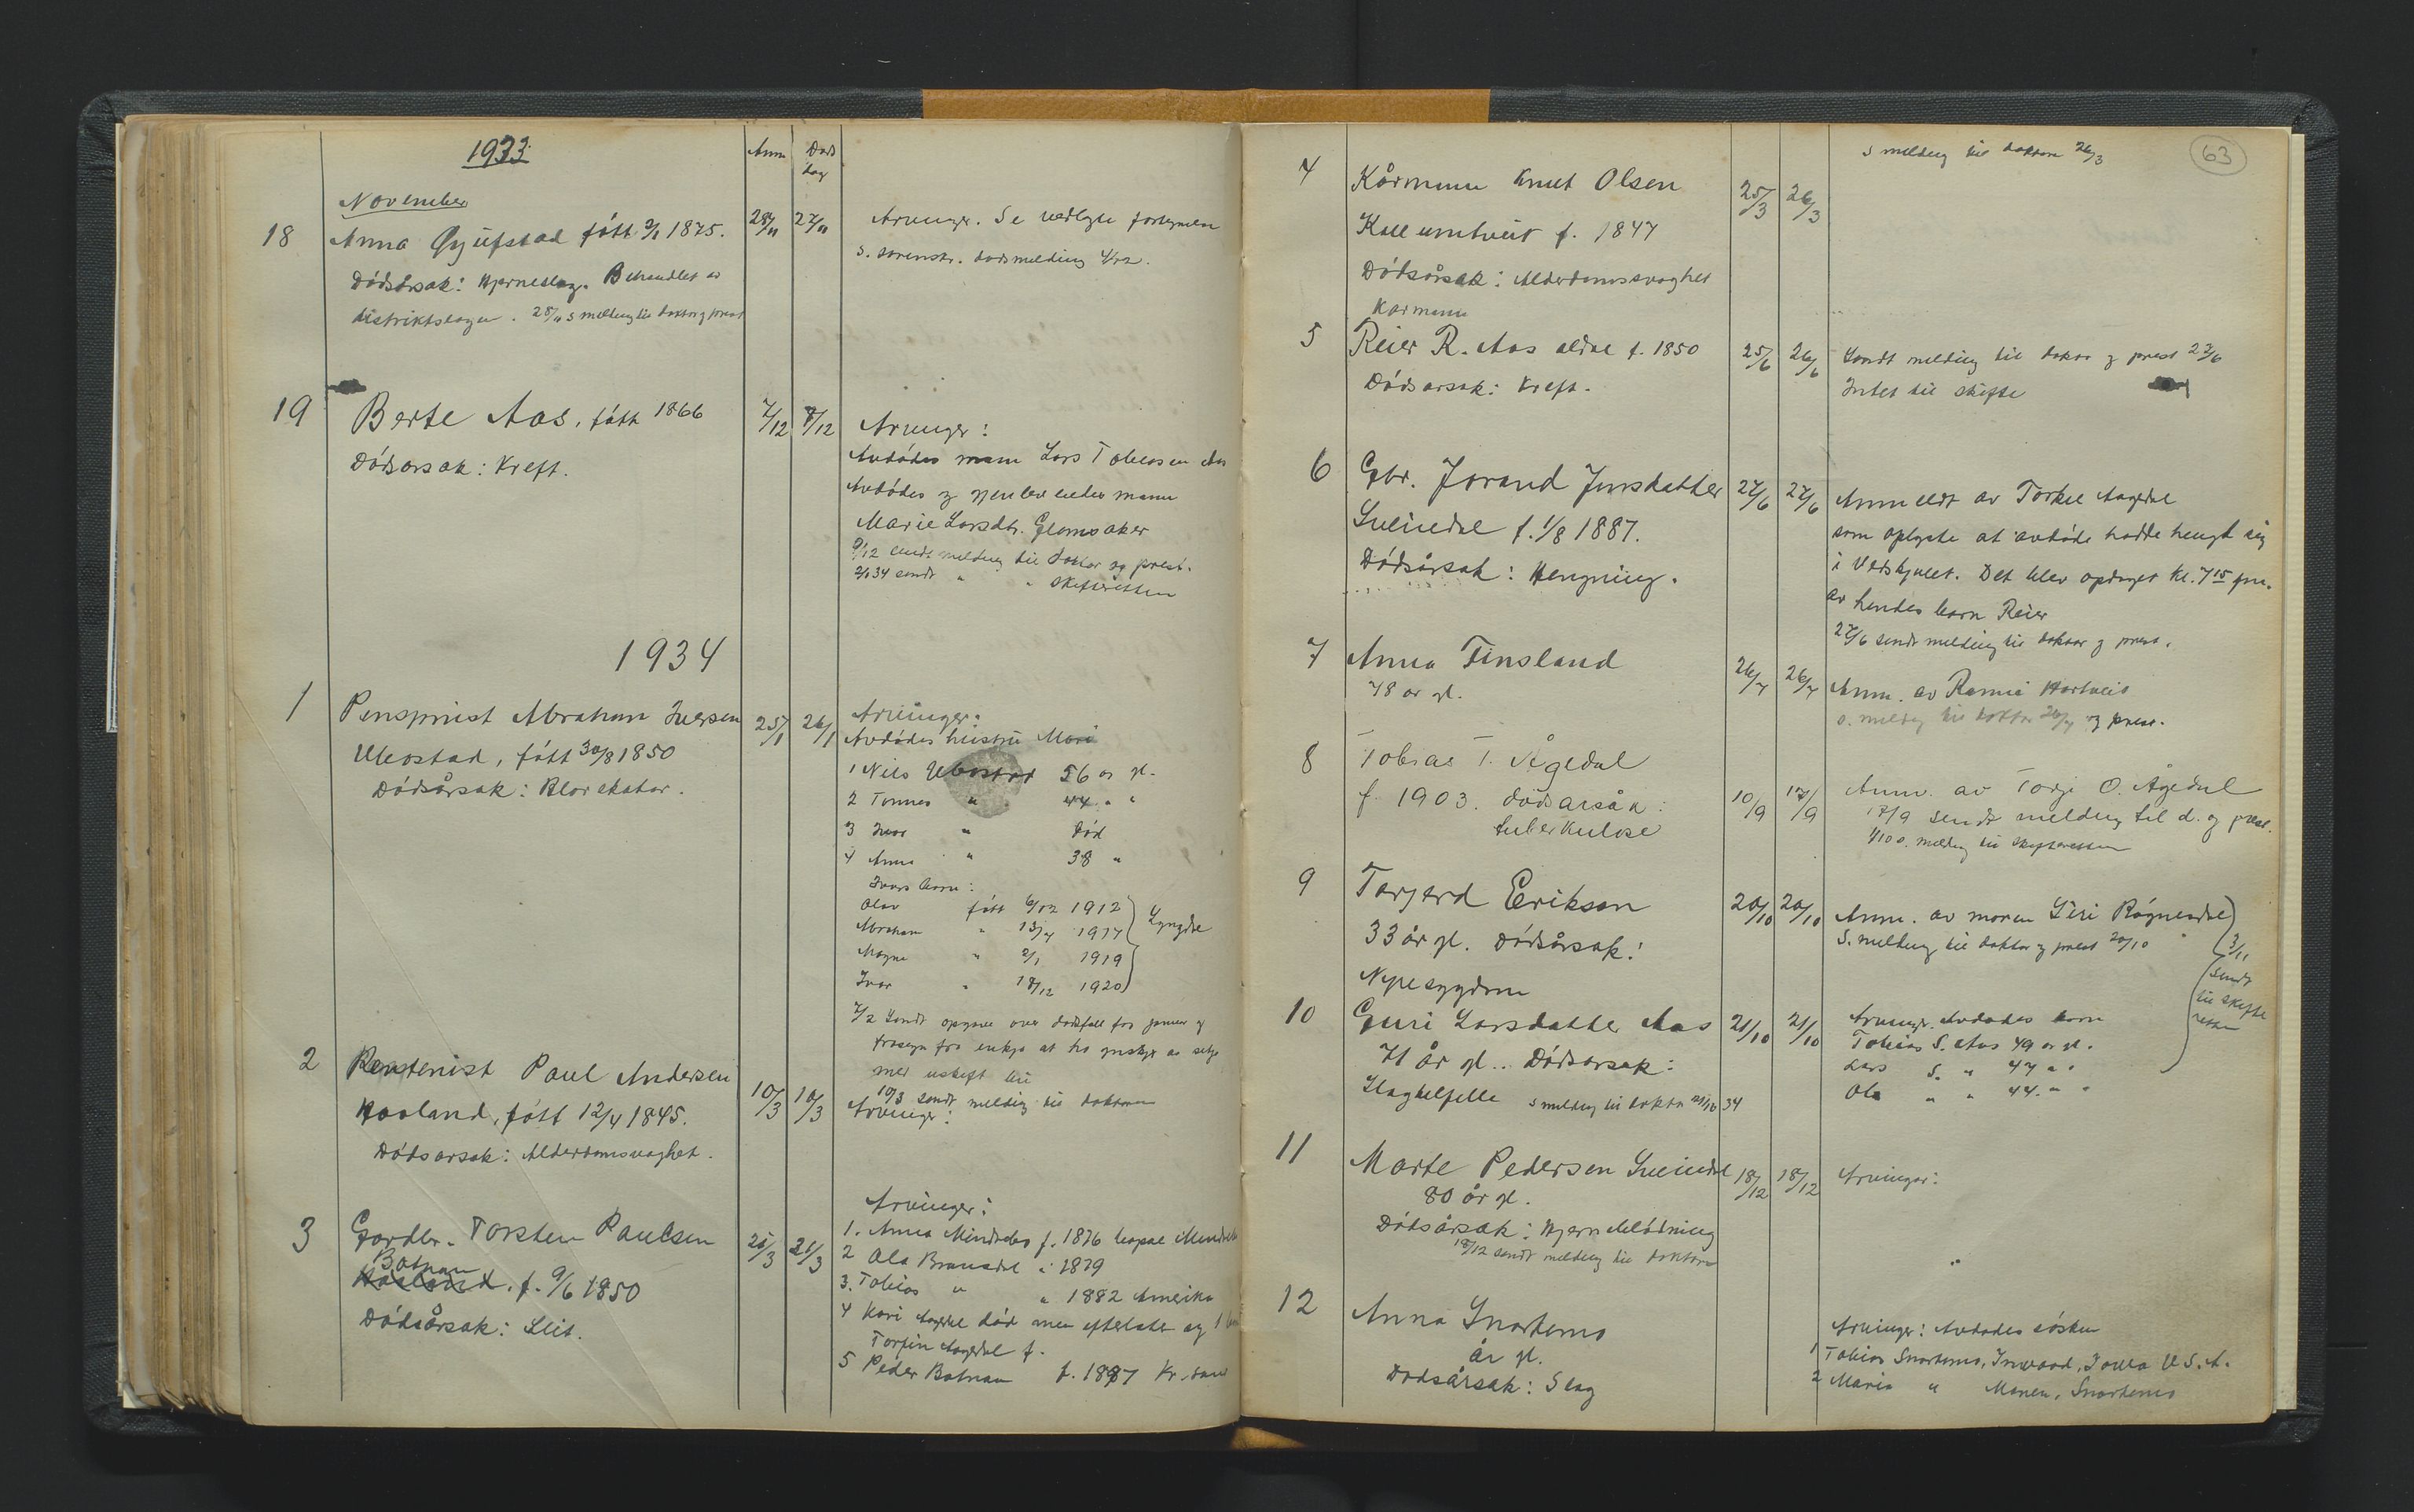 1933
Anm Døds
dag
November
18 Anna Gyufstad født 2/11 1875. 28/11 27/11 Arvinger. Se vedlagte fortegnelse
s. sorenskr. dødsmelding 4/12.
Dødsårsak: Hjerneslag. Behandlet av
distriktslægen. 28/11 s melding til doktor og prest
19 Berte Aas, født 1866 7/12 8/12 Arvinger:
Avdødes mann Lars Tobiassen Aas
Dødsorsak: Kreft.
Avdødes og gjenlevendes mann
Marie Larsdtr. Glomsaker
9/12 sendt melding til doktor og prest.
2/1 34 sendt " " skifteretten
1934
1 Pensjonist Abraham Iversen 25/1 26/1 Arvinger:
Ubostad, født 30/8 1850 Avdødes hustru Mari
Dødsårsak: Blærekatar.
1 Nils Ubostad 56 år gl.
2 Tønnes " 44 " "
3 Ivar " død
4 Anna " 38 "
Ivars barn:
Olav født 6/12 1912
Abraham " 13/4 1917 Lyngdal
Magne " 2/1 1919
Ivar " 18/12 1920
7/2 Sendt opgave over dødsfall for januar og
frasegn fra enkja at ho ynskjer as setje
med uskift bu
2 Rentenist Paul Andersen 10/3 10/3 10/3 sendt melding til doktoren
Haaland, født 12/4 1845. Arvinger:
Dødsorsak: Alderdomsvaghet.
3 Gardbr. Torsten Paulsen 21/3 21/3 Arvinger:
Botnan
Haaland. f. 9/6 1850
Dødsårsak: Slit.
1. Anna Mindrebø f. 1876 bopæl Mindrebø
2 Ola Bruuadal " 1879
3. Tobias " " 1882 Amerika
4 Kari Aagedal død men efterlater seg 1
Torfin Aagedal f.
5 Peder Botnan f. 1887 Kr.sand
63
s melding til doktoren 26/3
4 Kårmann Knut Olsen 25/3 26/3
Kalleumtveit f. 1847
Dødsårsak: Alderdomssvaghet
Karmann
5 Reier R. Aas eldre f. 1850 25/6 26/6 Sendt melding til doktor og prest 27/6
Dødsarsak: Kreft. Intet til skifte
6 Gbr. Jorand Jensdatter 27/6 27/6 Anmeldt av Torkel Aagedal
Sveindal f. 1/8 1887. som oplyste at avdøde hadde hengt sig
Dødsårsak: Hengning. i Vedskjulet. Det blev opdaget kl. 7 15 fm.
av hendes barn Reier
27/6 sendt melding til doktor og prest.
7 Anna Finsland 26/7 26/7 Anm. av Ramni Hortveit
78 år gl. s. melding til doktor 26/7 og prest.
8 Tobias T. Ågedal
f. 1903. dødsarsåk: 10/9 17/9 Anm. av Torje O. Ågedal
tuberkulose 17/9 sendt melding til d. og prest.
1/10 s. melding til skifteretten
9 Torjerd Erikson 20/10 20/10 Anm. av moren Siri Røgnesdal
33 år gl. Dødsårsak: S. melding til doktor og prest 20/10
Nyresygdom
3/11
sendt
til skifte
retten
10 Guri Larsdatter Aas 21/10 21/10 Arvinger. Avdødes barn
71 år gl. Dødsorsak: Tobias S. Aas 49 år gl.
Slagtilfelle s melding til doktor 21/10 34
Lars S. " 47 " "
Ola " " 44. " "
11 Marte Pedersen Sveindal 18/12 18/12 Arvinger:
80 år gl.
Dødsårsak: Hjerneblødning
18/12 sendt melding til doktoren
12 Anna Snartemo Arvinger: Avdødes søsken
år gl. 1 Tobias Snartemo, Inwood, Iowa U.S.A.
Dødsårsak: Slag 2 Maria " Monen, Snartemo